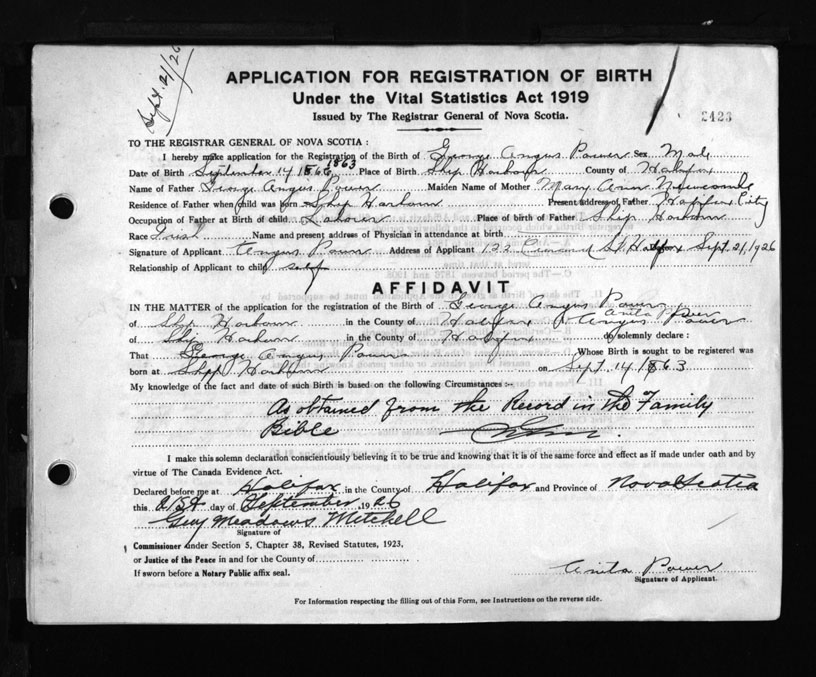 Sept. 21/26
APPLICATION FOR REGISTRATION OF BIRTH
Under the Vital Statistics Act 1919
Issued by The Registrar General of Nova Scotia.
2423
TO THE REGISTRAR GENERAL OF NOVA SCOTIA :
I hereby make application for the Registration of the Birth of George Angus Power Sex Male
1863
Date of Birth September 14 1866 Place of Birth Ship Harbour County of Halifax
Name of Father George Angus Power Maiden Name of Mother Mary Ann Newcombe
Residence of Father when child was born Ship Harbour Present address of Father Halifax City
Occupation of Father at Birth of child Laborer Place of birth of Father Ship Harbour
Race Irish Name and present address of Physician in attendance at birth
Signature of Applicant Angus Power Address of Applicant 122 St. Halifax Sept. 21, 1926
Relationship of Applicant to child self
AFFIDAVIT
IN THE MATTER of the application for the registration of the Birth of George Angus Power
Anita Power
of Ship Harbour in the County of Halifax Angus Power
of Ship Harbour in the County of Halifax do solemnly declare :
That George Angus Power Whose Birth is sought to be registered was
born at Ship Harbour on Sept 14 1863
My knowledge of the fact and date of such Birth is based on the following Circumstances :-
As obtained from the Record in the Family
Bible
I make this solemn declaration conscientiously believing it to be true and knowing that it is of the same force and effect as if made under oath and by
virtue of The Canada Evidence Act.
Declared before me at Halifax in the County of Halifax and Province of Nova Scotia
this 21st day of September 1926
Guy Meadows Mitchell
Signature of
Commissioner under Section 5, Chapter 38, Revised Statutes, 1923,
or Justice of the Peace in and for the County of
If sworn before a Notary Public affix seal.
Anita Power
Signature of Applicant.
For Information respecting the filling out of this Form, see Instructions on the reverse side.